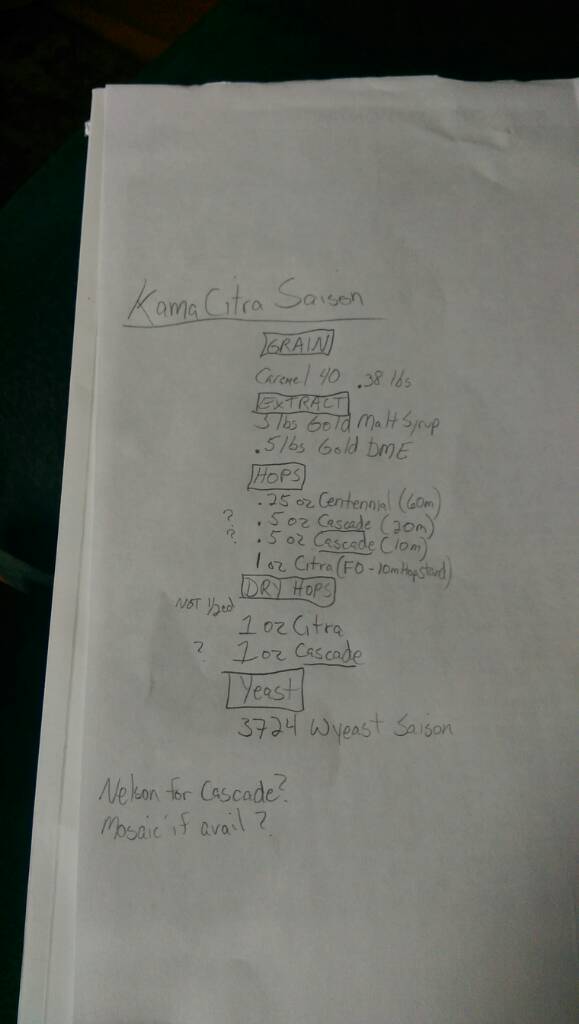 Kama Citra Saison
GRAIN
Caramel 40 .38 lbs
EXTRACT
3 lbs Gold Malt Syrup
.5 lbs Gold DME
HOPS
.25 oz Centennial (60m)
? .5 oz Cascade (20m)
? .5 oz Cascade (10m)
1 oz Citra (FO - 10m Hop Stand)
DRY HOPS
NOT 1/2ed
1 oz Citra
? 1 oz Cascade
Yeast
3724 Wyeast Saison
Nelson for Cascade?
Mosaic if avail?